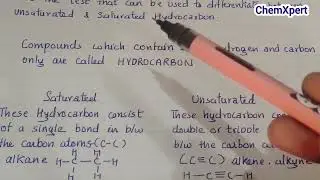 ChemXpert
the test that can be used to differentiate
Unsaturated & Saturated Hydrocarbon.
Compounds which contain hydrogen and carbon
only are called HYDROCARBON
Saturated
These Hydrocarbon consist
of a single bond in b/w
the carbon atoms (C-C)
alkane
H H
H-C-C-H
H H
Unsaturated
These hydrocarbon
double or tripple
b/w the carbon
(C≡C) alkene. alkyne
H-C≡C-H